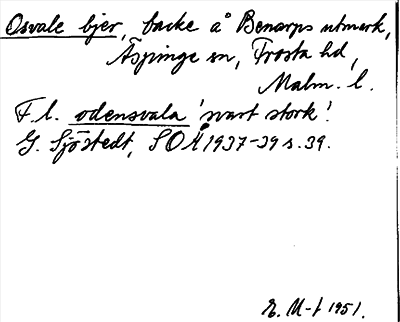 Osvale bjer, backe å Benarps utmark,
Äspinge sn, Frosta hd,
Malm. l.
F.l. odensvala 'svart stork'.
G. Sjöstedt, SOÅ 1937-39 s. 39.
E. M-f 1951.